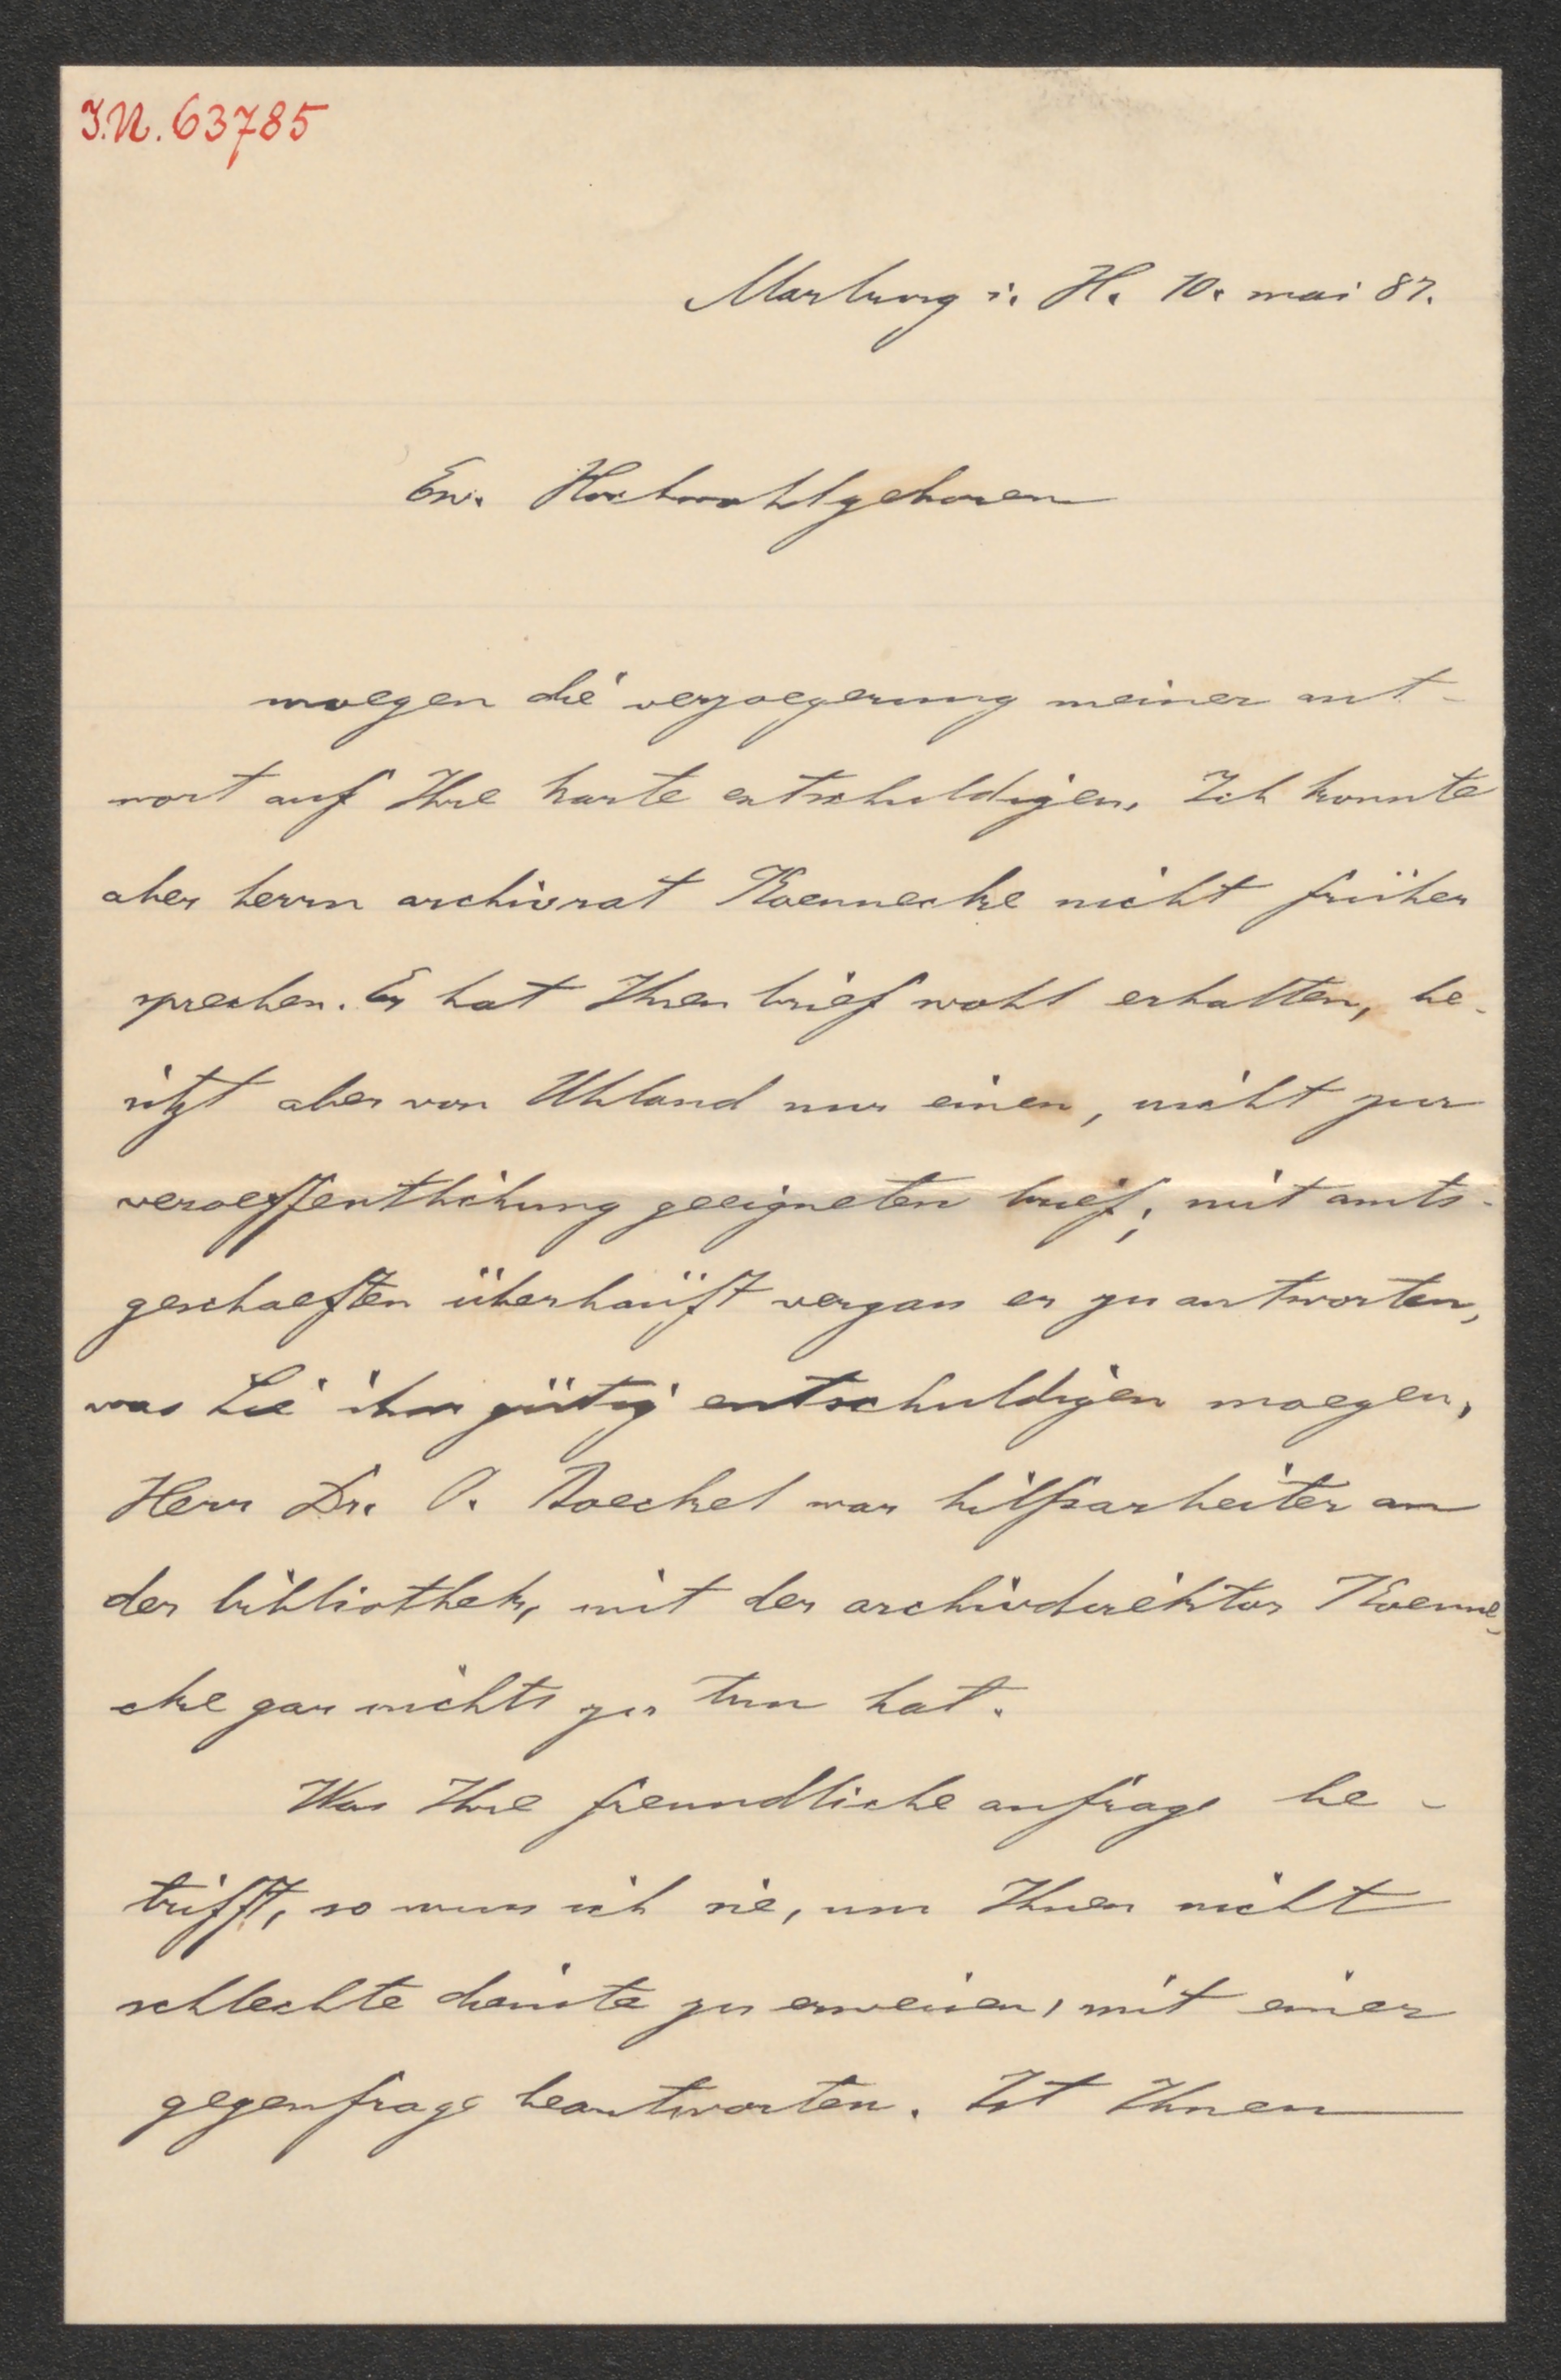 I.N. 63785
Marburg i. H. 10. mai 87.
Ew. Hochwohlgeboren
moegen die verzoegerung meiner ant-
wort auf Ihre karte entschuldigen. Ich konnte
aber herrn archivrat Koennecke nicht früher
sprechen. Er hat Ihren brief wohl erhalten, be-
sitzt aber von Uhland nur einen, nicht zur
veroeffentlichung geeigneten brief; mit amts-
geschaeften überhäuft vergass er zu antworten,
was Sie ihm gütig entschuldigen moegen.
Herr Dr. O. Boeckel war hilfsarbeiter an
der bibliothek, mit der archivdirektor Koenne-
cke gar nichts zu tun hat.
Was Ihre freundliche anfrage be-
trifft, so muss ich sie, um Ihnen nicht
schlechte dienste zu erweisen, mit einer
gegenfrage beantworten. Ist Ihnen